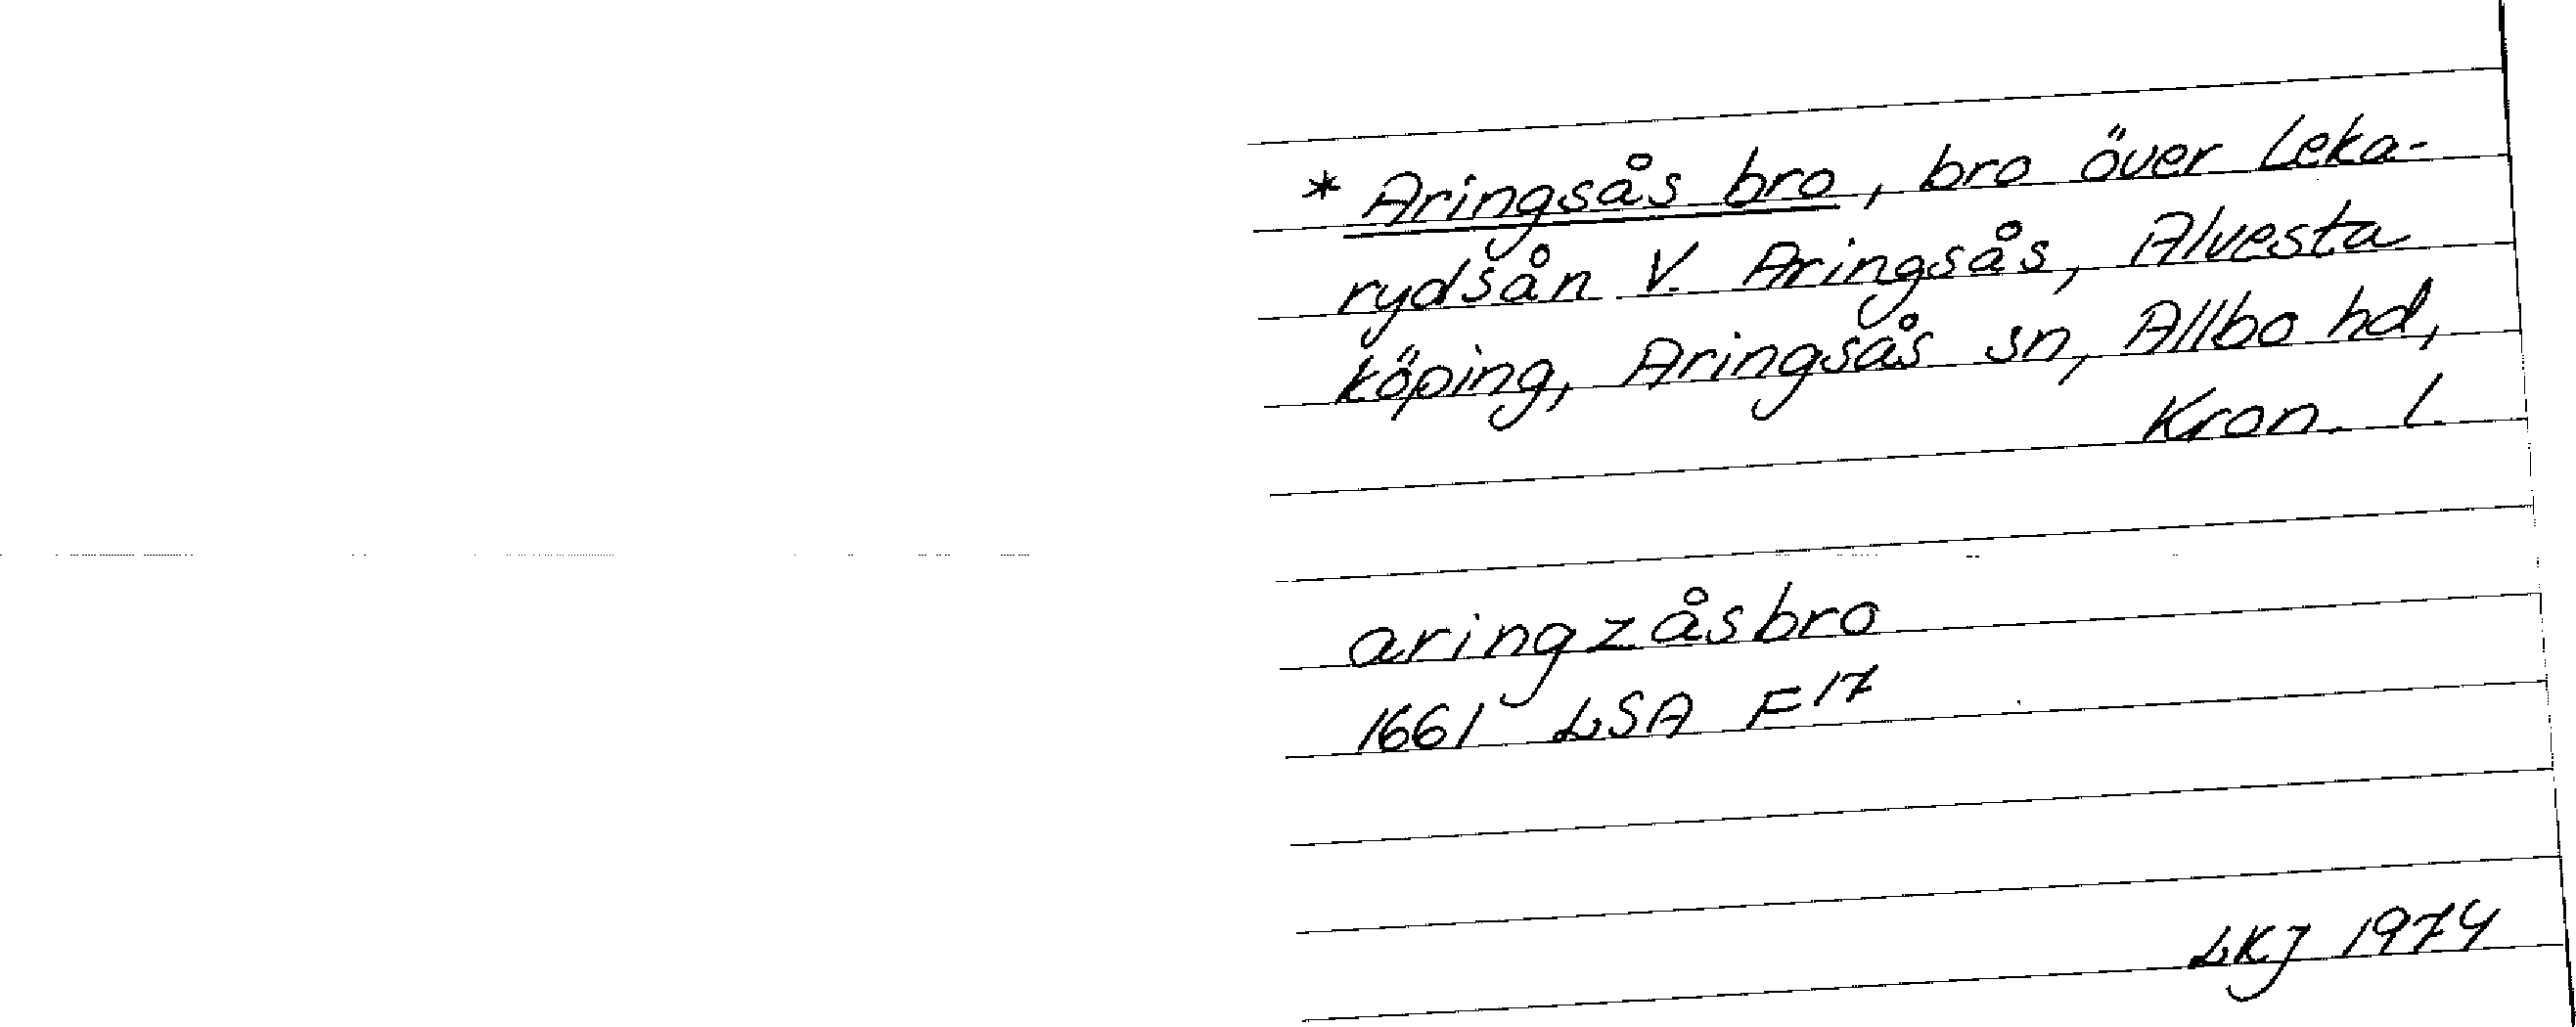 * Aringsås bro, bro över Leka-
rydsån V. Aringsås, Alvesta
köping, Aringsås sn, Allbo hd,
Kron. l.
aringzåsbro
1661 LSA F17
LKJ 1974